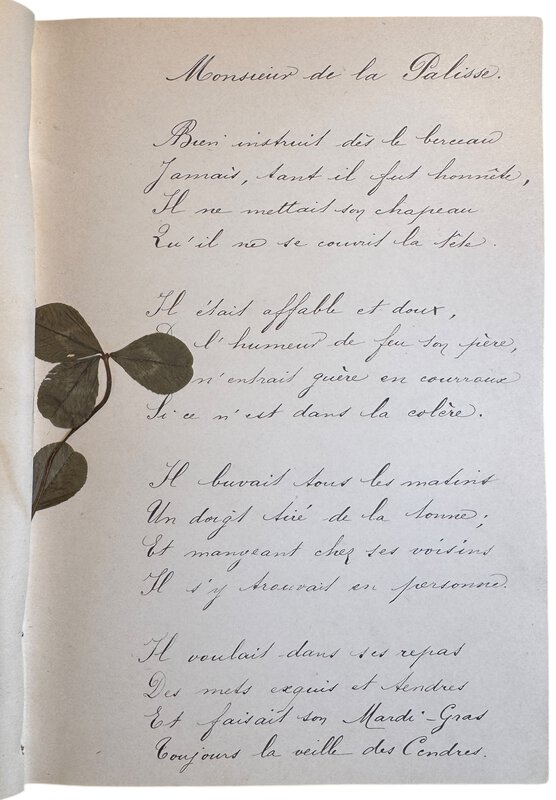 Monsieur de la Palisse.
Bien instruit dès le berceau
Jamais, tant il fut honnête,
Il ne mettait son chapeau
Qu'il ne se couvrit la tête.
Il était affable et doux,
l'humeur de feu son père,
n'entrait guère en courroux
Si ce n'est dans la colère.
Il buvait tous les matins
Un doigt tiré de la tonne;
Et mangeant chez ses voisins
Il s'y trouvait en personne.
Il voulait dans ses repas
Des mets exquis et tendres
Et faisait son Mardi-Gras
Toujours la veille des Cendres.